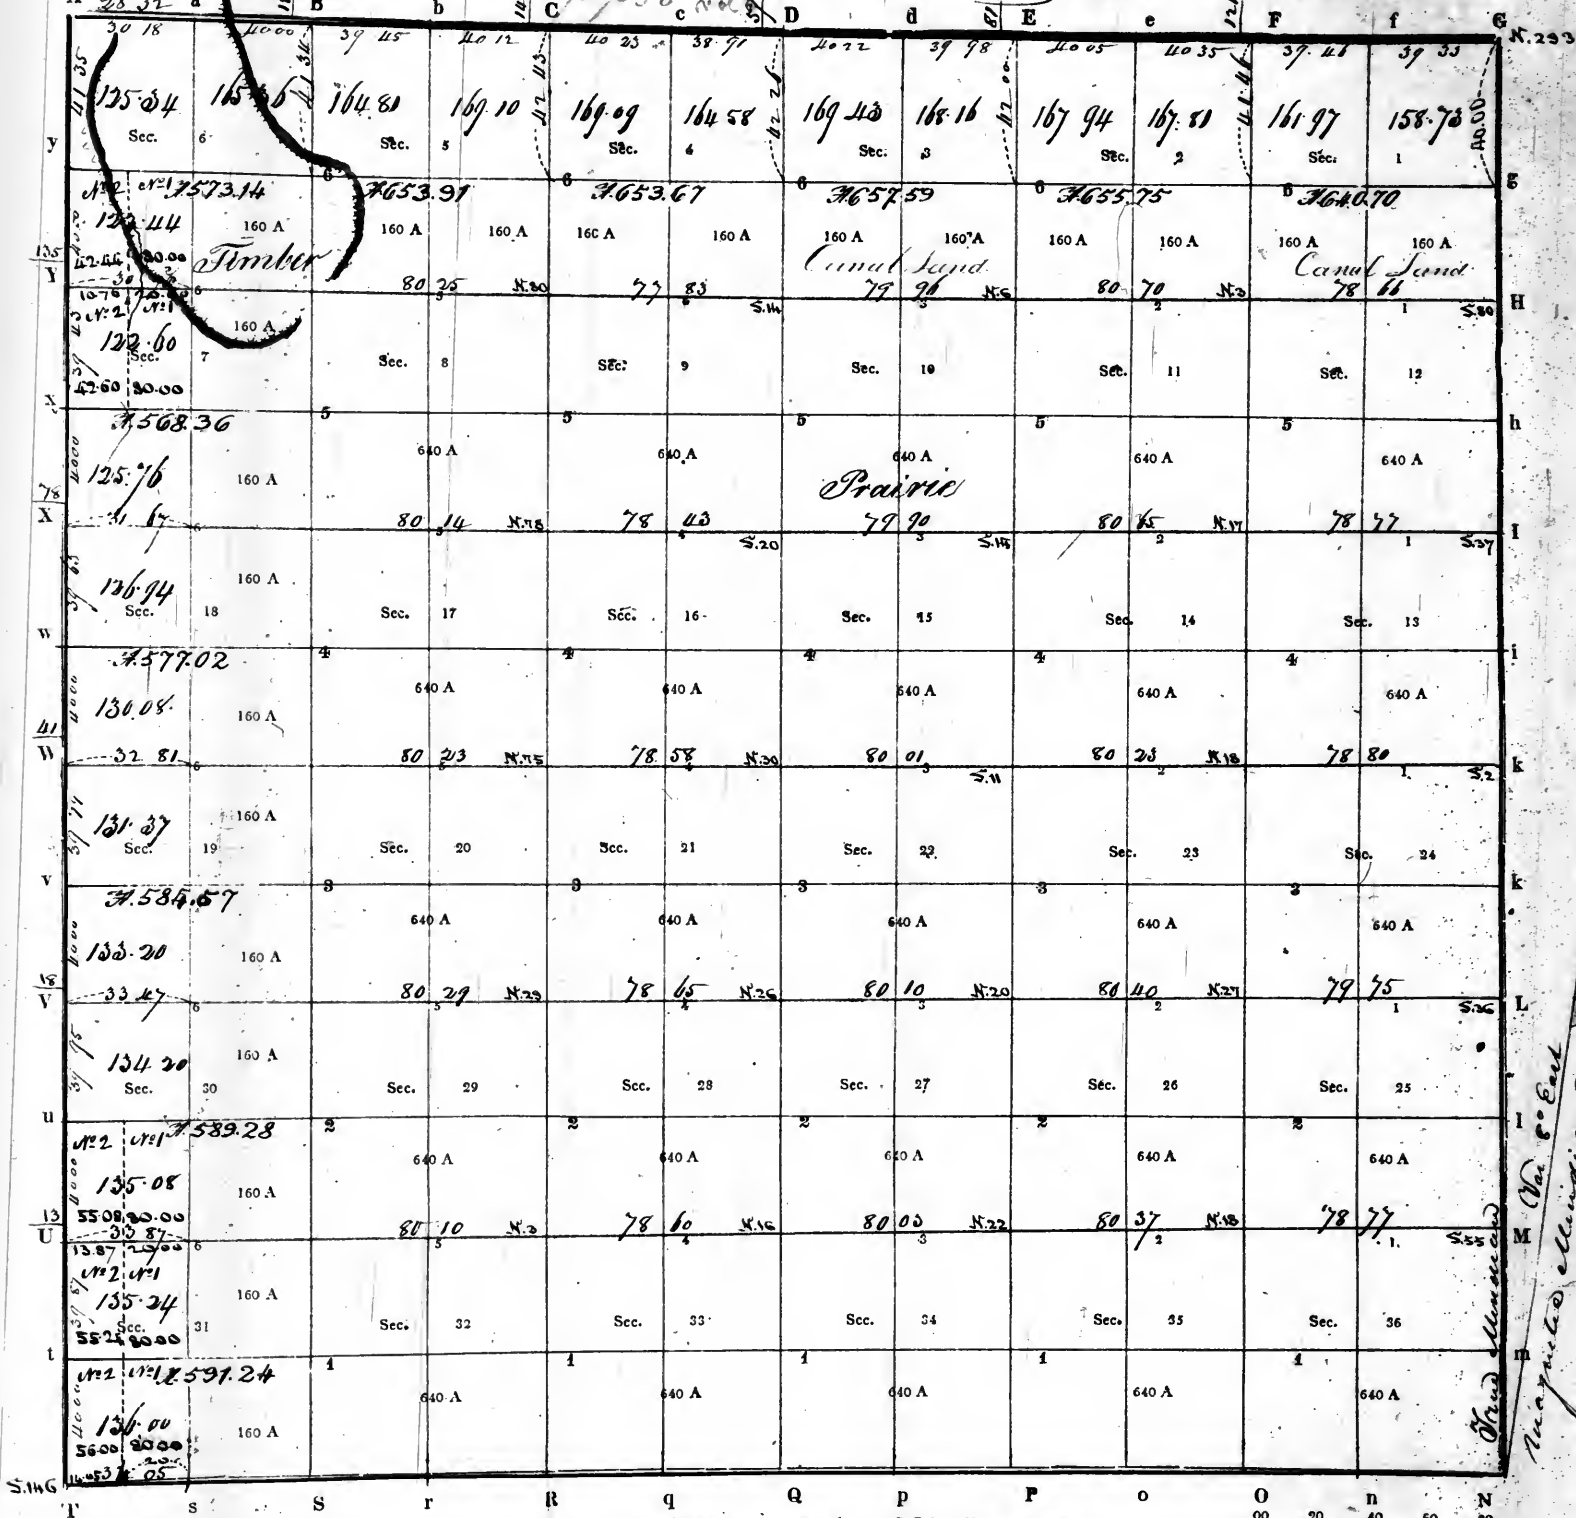 a B b C c D d E e F f G
30 18 40 00 39 45 40 12 40 23 38 91 40 22 39 98 40 05 40 35 39.46 39 33 N.293
41 35 41 34 42 43 42 26 42 00 41.46
125.34 164.81 169.10 169.09 164 58 169 43 168.16 167 94 167.81 161.97 158.73
y Sec. 6 Sec. 5 Sec. 4 Sec. 3 Sec. 2 Sec. 1
6 6 6 6 6 g
No 2 No 1 A 573.14 A 653.91 A 653.67 A 657.59 A 655.75 A 640.70
122.44 160 A 160 A 160 A 160 A 160 A 160 A 160 A 160 A 160 A 160 A 160 A
135 Y 42.44 80.00 Timber Canal Land Canal Land
80 25 N.30 77 83 S.14 79 96 N.6 80 70 N.3 78 66 S.80 H
6 5 3 2 1
No 2 No 1
122.60 160 A
Sec. 7 Sec. 8 Sec. 9 Sec. 10 Sec. 11 Sec. 12
42.60 80.00
X 5 5 5 5 5 h
A 568.36
4000 125.76 160 A 640 A 640 A 640 A 640 A 640 A
Prairie
78 X 31 67 80 14 N.78 78 43 S.20 79 90 S.15 80 65 N.17 78 77 S.37 I
6 5 4 3 2 1
39 63 126.94 160 A
Sec. 18 Sec. 17 Sec. 16 Sec. 15 Sec. 14 Sec. 13
w 4 4 4 4 4 i
A 577.02
4000 130.08 160 A 640 A 640 A 640 A 640 A 640 A
41 W 32 81 80 23 N.75 78 58 N.30 80 01 S.11 80 23 N.18 78 80 S.2 k
6 4 3 2 1
39 77 131.37 160 A
Sec. 19 Sec. 20 Sec. 21 Sec. 22 Sec. 23 Sec. 24
v 3 3 3 3 3 k
A. 584.57
4000 133.20 160 A 640 A 640 A 640 A 640 A 640 A
18 V 33 47 80 29 N.29 78 65 N.26 80 10 N.20 80 40 N.27 79 75 S.36 L
6 5 4 3 2 1
39 95 134 20 160 A
Sec. 30 Sec. 29 Sec. 28 Sec. 27 Sec. 26 Sec. 25
u 2 2 2 2 2 l
No 2 No 1 A 589.28
4000 135.08 160 A 640 A 640 A 640 A 640 A 640 A
55.08 80.00
13 U 33 87 80 10 N.3 78 60 N.16 80 03 N.22 80 37 N.18 78 77 S.55 M
13.87 20.00 6 5 4 3 2 1
No 2 No 1
39 87 135.24 160 A
Sec. 31 Sec. 32 Sec. 33 Sec. 34 Sec. 35 Sec. 36
55.24 80.00
t 1 1 1 1 1 m
No 2 No 1 A 591.24
4000 136.00 160 A 640 A 640 A 640 A 640 A 640 A
56.00 80.00
S.146
T s S r R q Q p P o O n N
True Meridian
Magnetic Meridian
(Var 8° East